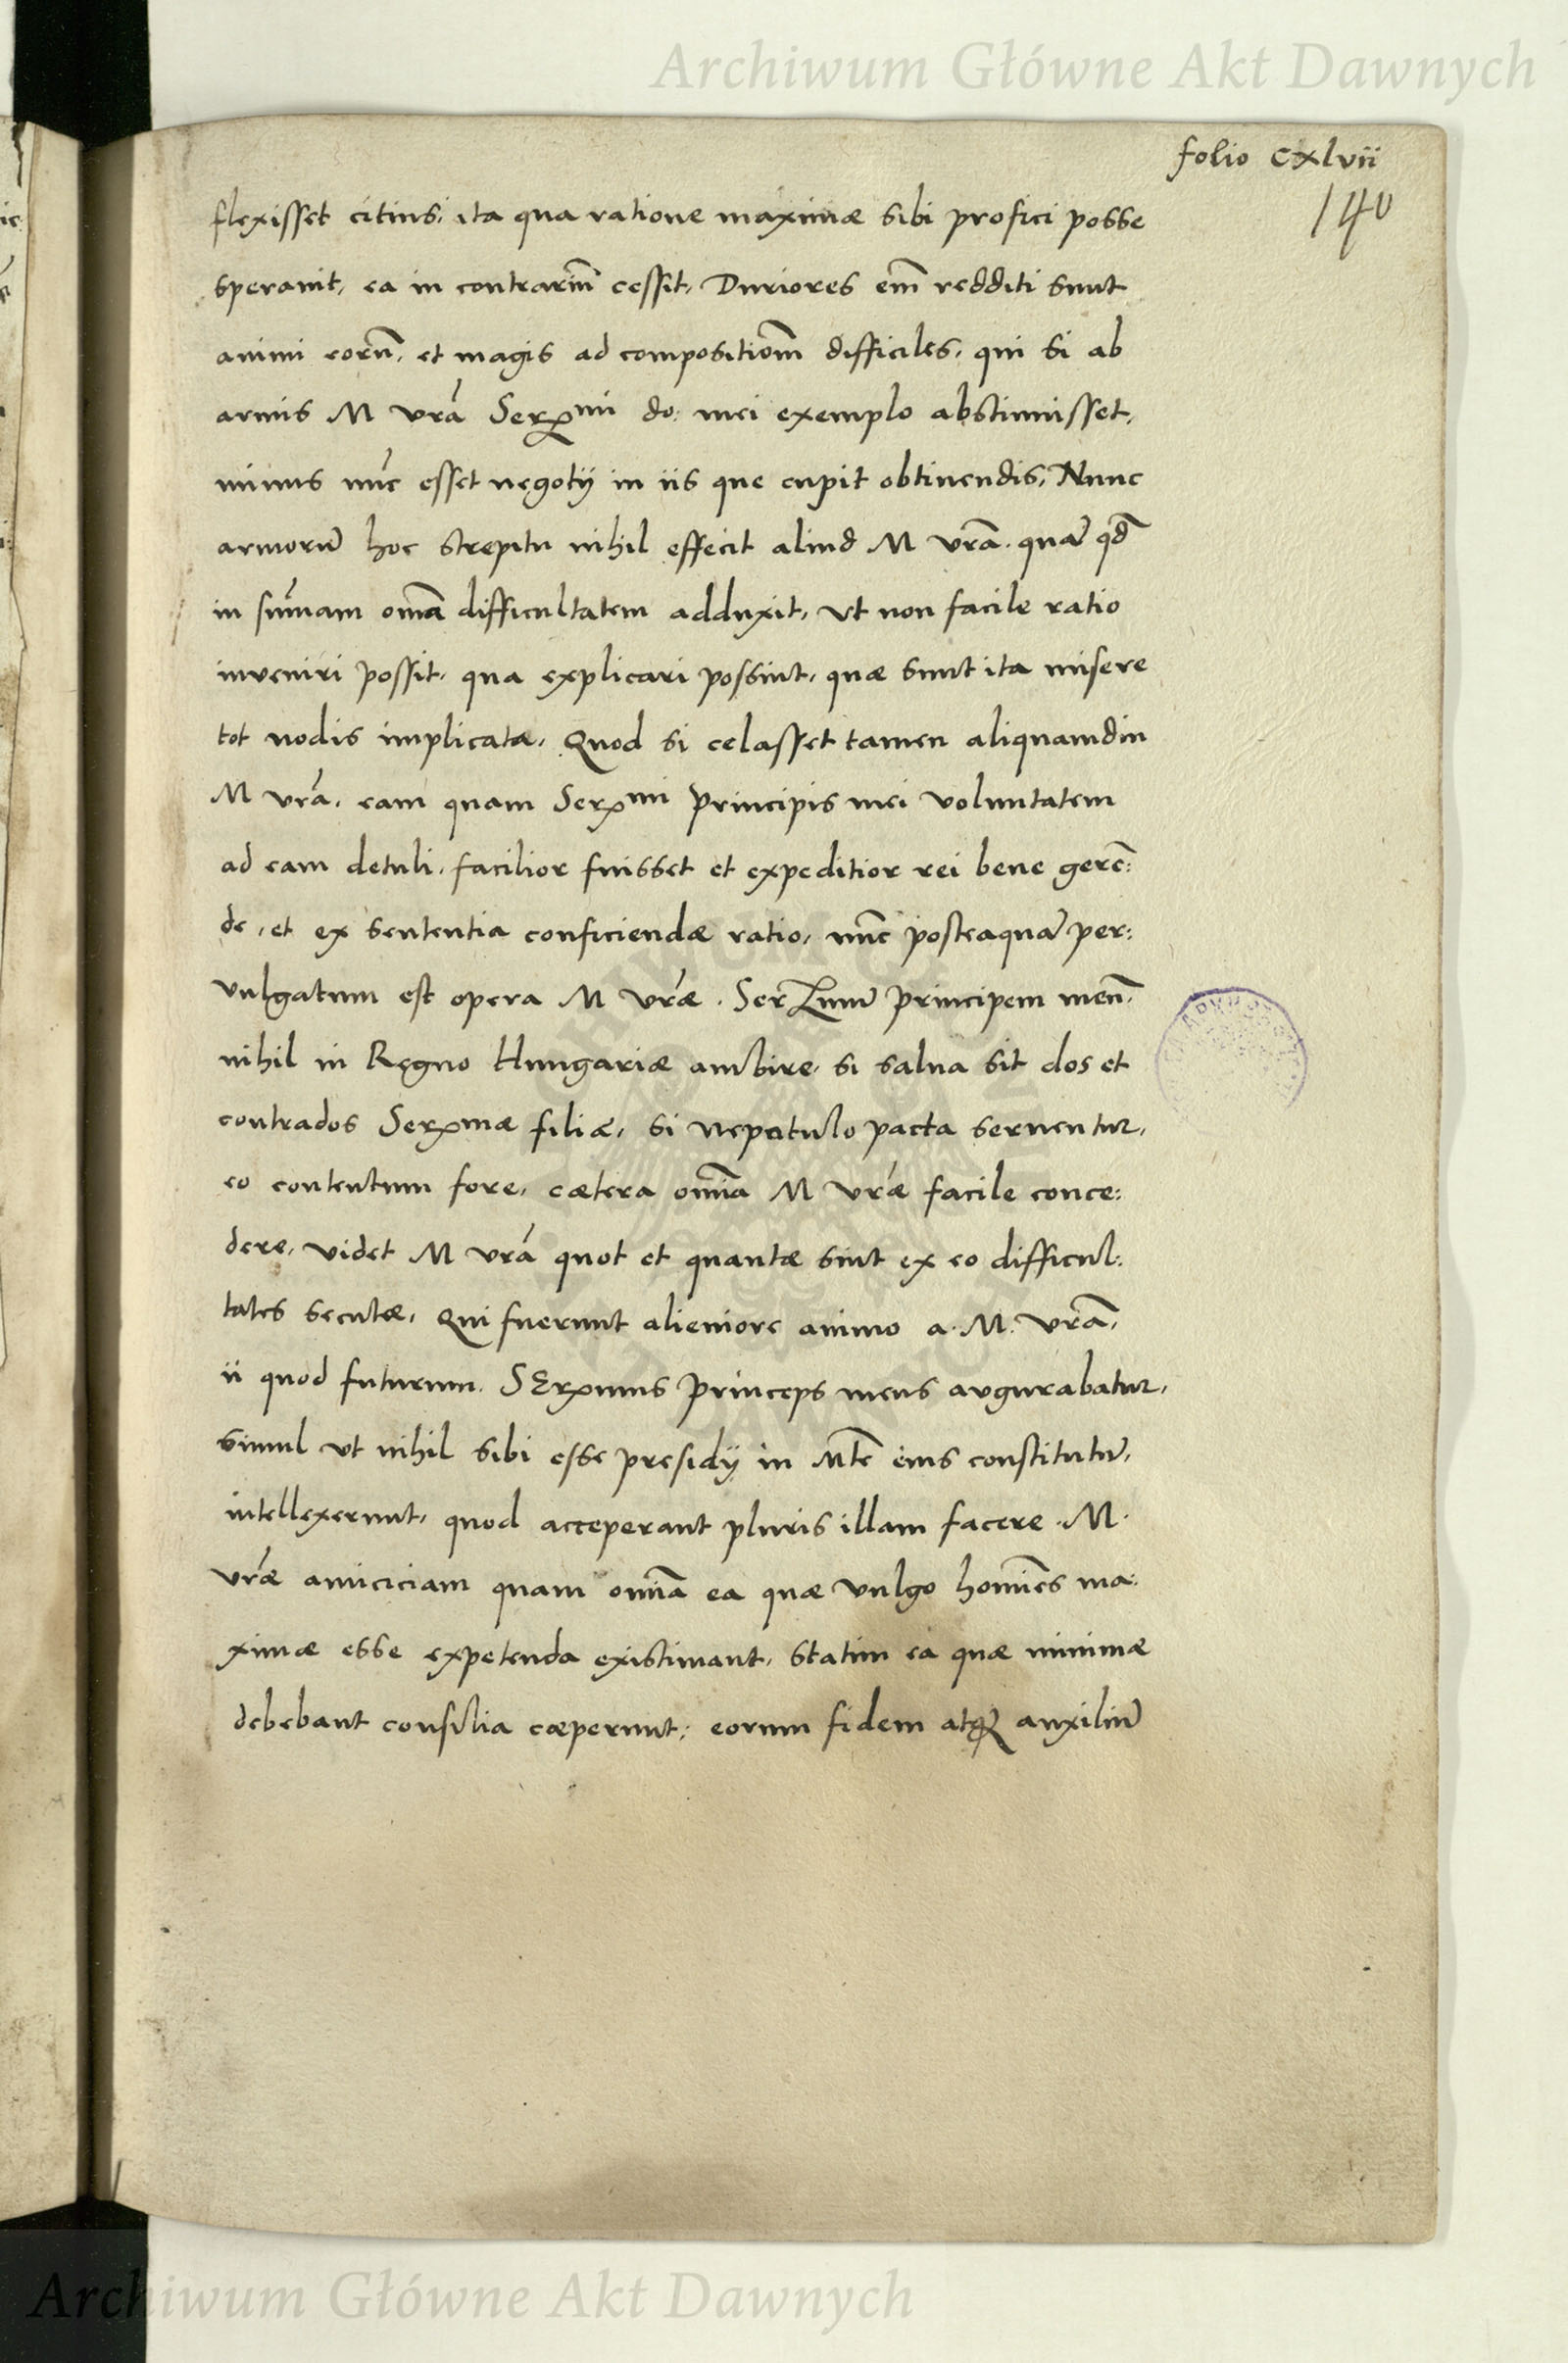 Archiwum Główne Akt Dawnych
folio cxlvii
140
flexisset citius, ita qua ratione maximæ sibi profici posse
speravit, ea in contrariũ cessit, Duriores em̃ redditi sunt
animi eorũ, et magis ad compositiom̃ difficiles, qui si ab
armis M vrã Serᵐⁱ do: mei exemplo abstinuisset,
minus nũc esset negotÿ in iis que cupit obtinendis, Nunc
armorũ hoc strepitu nihil effecit aliud M vrã. quã qđ
in sum̃am om̃a difficultatem adduxit, vt non facile ratio
inveniri possit, qua explicari possint, quæ sunt ita misere
tot nodis implicata, Quod si celasset tamen aliquamdiu
M vrã, eam quam Serᵐⁱ principis mei voluntatem
ad eam detuli, facilior fuisset et expeditior rei bene gerẽ:
de, et ex sententia conficiendæ ratio, nũc posteaquã per:
vulgatum est opera M vræ̃. Serᵐũ principem meũ,
nihil in Regno Hungariæ ambire, si salua sit dos et
contrados Serᵐæ filiæ, si nepotulo pacta seruentur,
eo contentum fore, cætera om̃ia M vræ̃ facile conce:
dere, videt M vrã quot et quantæ sint ex eo difficul:
tates secutæ, Qui fuerunt alieniore animo a. M. vrã,
ii quod futurum. SErᵐus princeps meus avgurabatur,
simul vt nihil sibi esse presidÿ in Mte eius constitutũ,
intellexerunt, quod acceperant pluris illam facere. M.
vræ̃ amiciciam quam om̃ia ea quæ vulgo homĩes ma:
ximæ esse expetenda existimant, statim ea quæ minimæ
debebant consilia cæperunt; eorum fidem atqꝫ auxiliũ
Archiwum Główne Akt Dawnych